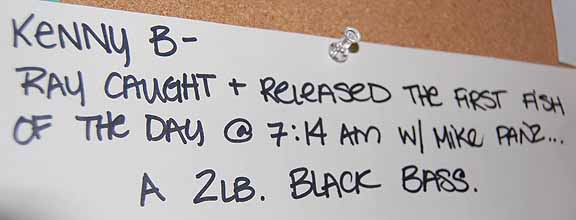 KENNY B-
RAY CAUGHT + RELEASED THE FIRST FISH
OF THE DAY @ 7:14 AM W/ MIKE PANZ...
A 2LB. BLACK BASS.